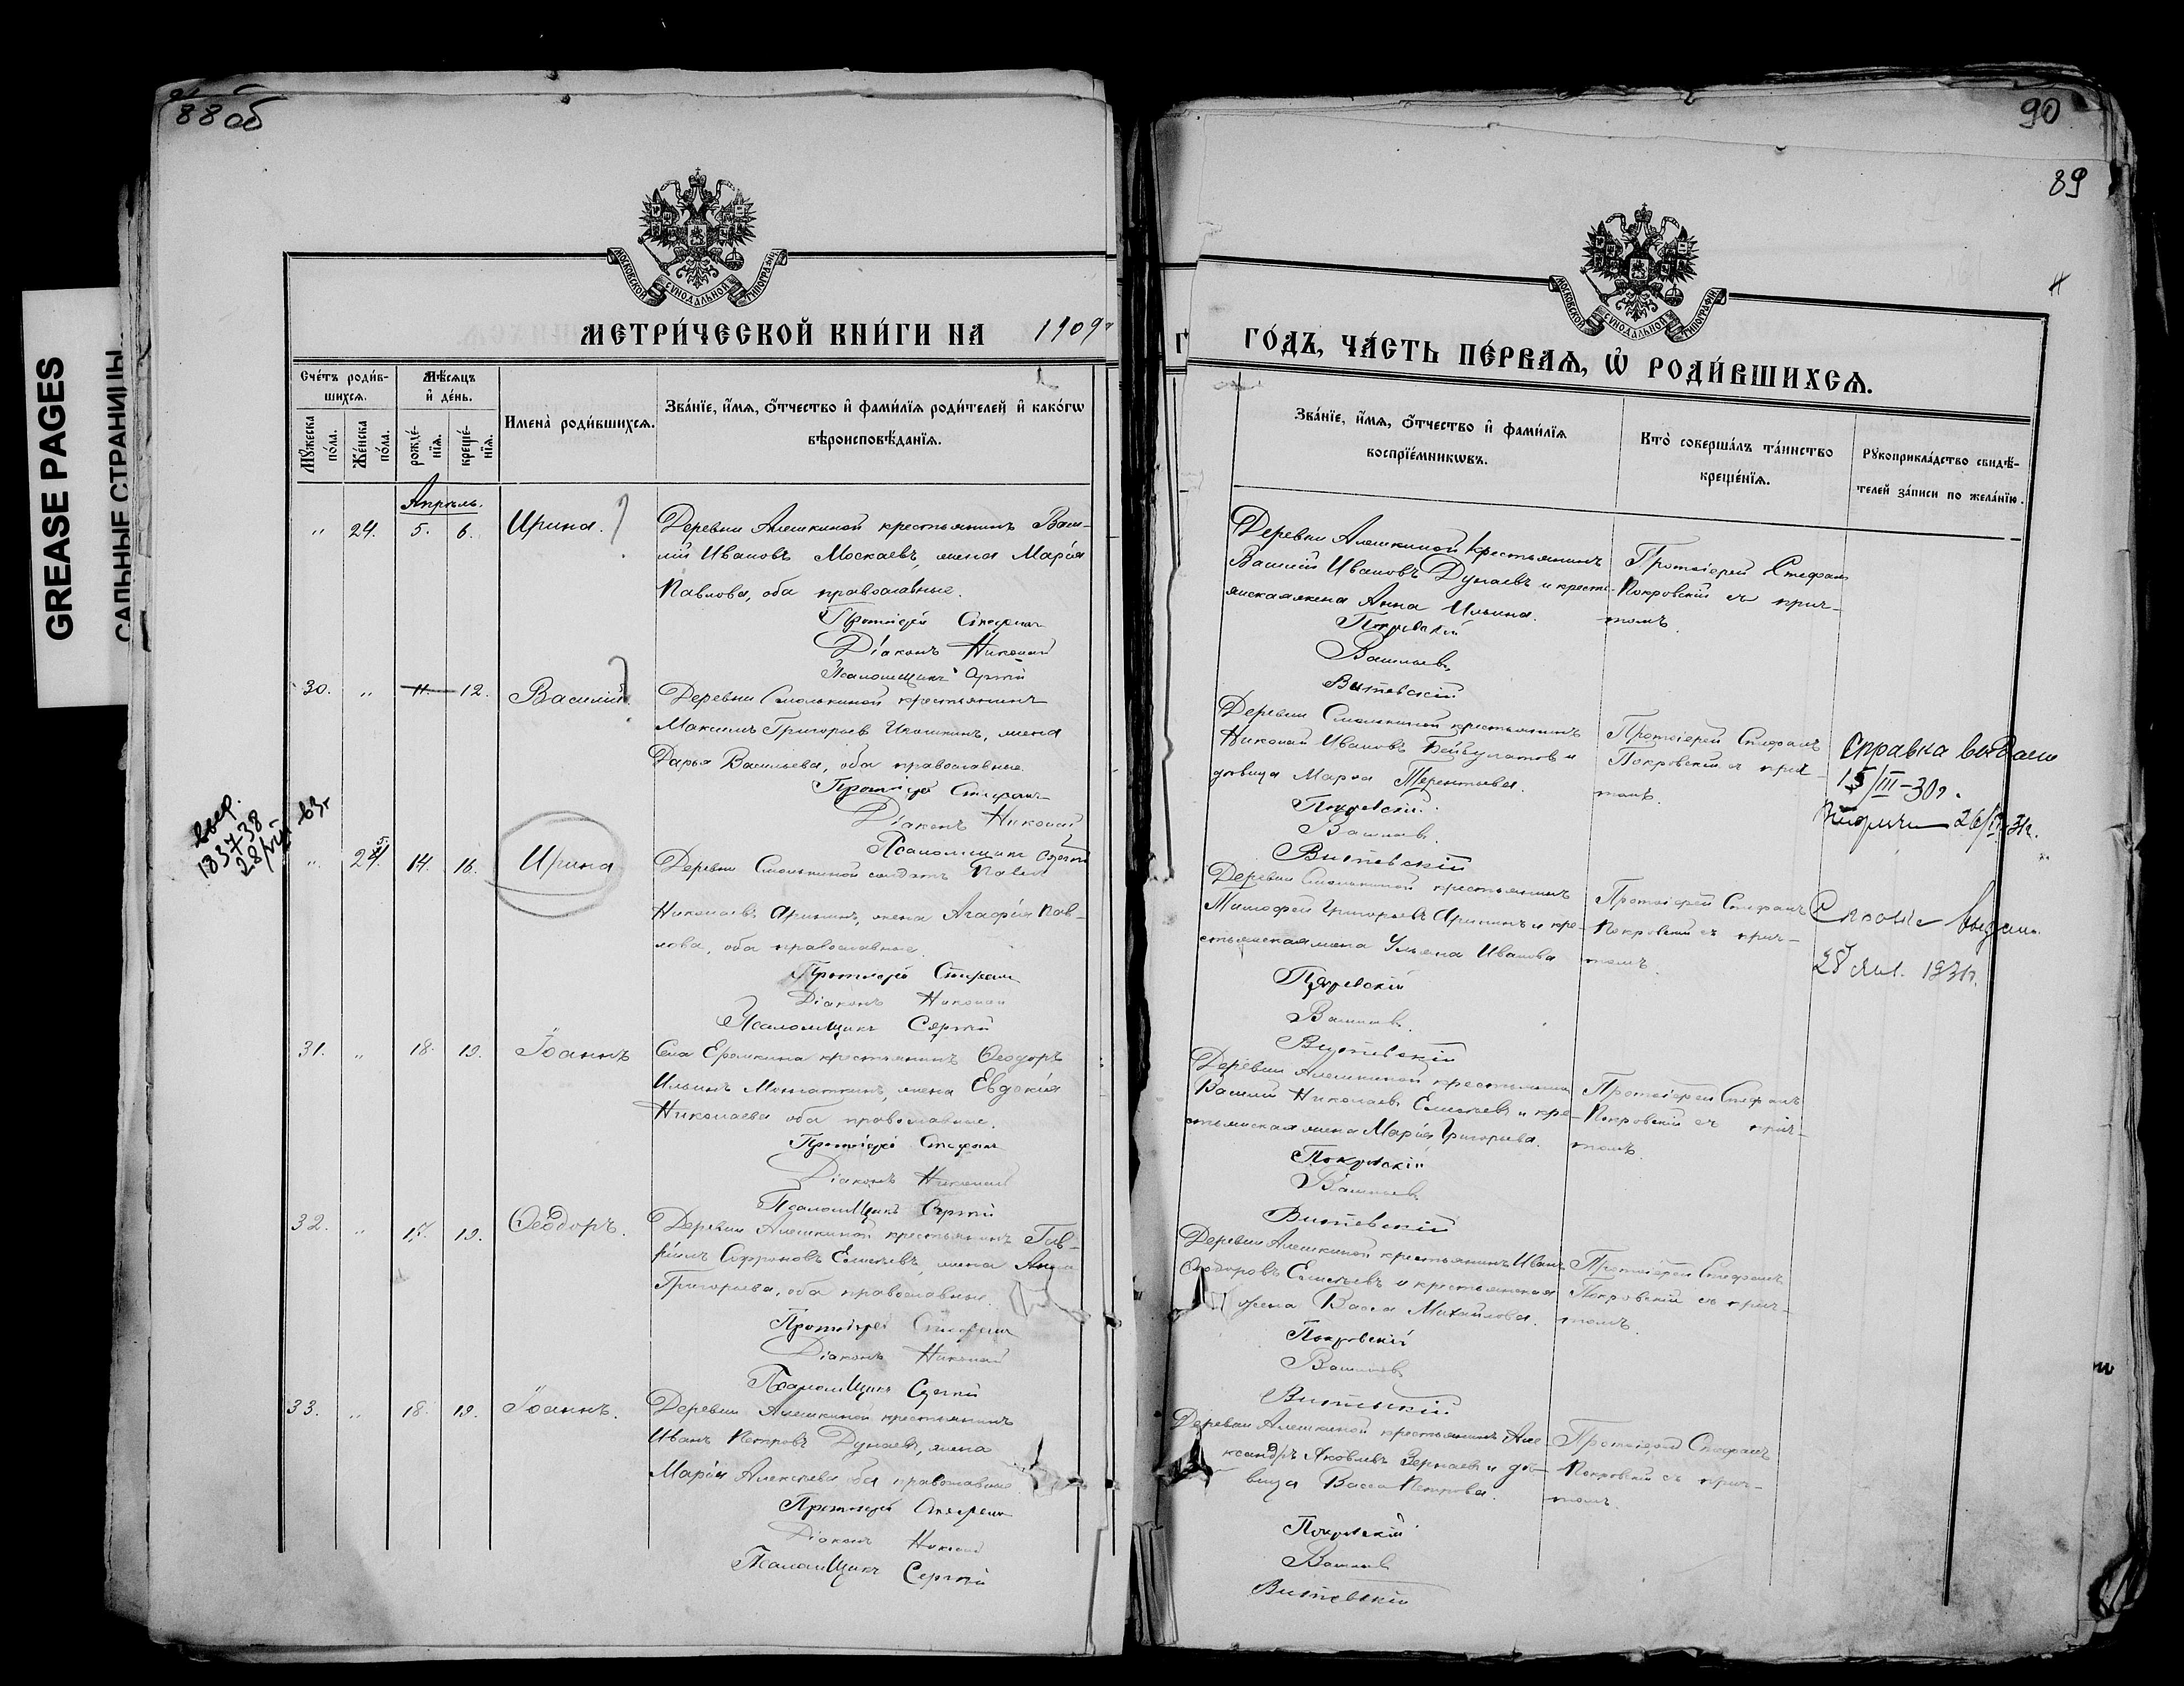 88 об
90
89
GREASE PAGES
САЛЬНЫЕ СТРАНИЦЫ
МОСКОВСКОЙ СѴНОДАЛЬНОЙ ТИПОГРАФІИ
МЕТРИ́ЧЕСКОЙ КНИ́ГИ НА 1909
Сче́тъ роди́в-
шихсѧ.
Мꙋ́жеска по́ла.
Же́нска по́ла.
Мѣ́сѧцъ
и҆ де́нь.
рожде́-нїѧ.
креще́-нїѧ.
И҆мена̀ роди́вшихсѧ.
Зва́нїе, и҆́мѧ, ѻ҆́тчество и҆ фами́лїѧ роди́телей и҆ како́гѡ
вѣроисповѣ́данїѧ.
Апрѣль.
" 24. 5. 6. Ирина. ?
Деревни Алешкиной крестьянинъ Васи-
лій Ивановъ Москаевъ, жена Марія
Павлова, оба православные.
Протоіерей Стефанъ
Діаконъ Николай
Псаломщикъ Сергій
30. " 11. 12. Василій ?
Деревни Смолькиной крестьянинъ
Максимъ Григорьев Икошкинъ, жена
Дарья Васильева, оба православные.
Протоіерей Стефанъ
Діаконъ Николай
Псаломщикъ Сергій
183738
" 25. 14. 16. Ирина
Деревни Смолькиной солдатъ
Николаевъ Аринин, жена Агафія Пав-
лова, оба православные.
Протоіерей Стефанъ
Діаконъ Николай
Псаломщикъ Сергій
31. " 18. 19. Іоаннъ
Села Еремкина крестьянинъ Ѳеодоръ
Ильинъ, жена Евдокія
Николаева оба православные.
Протоіерей Стефанъ
Діаконъ Николай
Псаломщикъ Сергій
32. " 17. 19. Ѳеодоръ.
Деревни Алешкиной крестьянинъ Гав-
ріилъ Софроновъ Елисѣевъ, жена Анна
Григорьева, оба православные.
Протоіерей Стефанъ
Діаконъ Николай
Псаломщикъ Сергій
33. " 18. 19. Іоаннъ.
Деревни Алешкиной крестьянинъ
Иванъ Петровъ Дунаевъ, жена
Марія Алексѣева оба православные.
Протоіерей Стефанъ
Діаконъ Николай
Псаломщикъ Сергій
МОСКОВСКОЙ СѴНОДАЛЬНОЙ ТИПОГРАФІИ
ГО́ДЪ, ЧА́СТЬ ПЕ́РВАѦ, Ѡ҆ РОДИ́ВШИХСѦ.
Зва́нїе, и҆́мѧ, ѻ҆́тчество и҆ фами́лїѧ
воспрїе́мникѡвъ.
Кто̀ соверша́лъ та́инство
креще́нїѧ.
Рꙋкоприкла́дство свидѣ́-
телей за́писи по жела́нїю.
Деревни Алешкиной крестьянинъ
Василій Ивановъ Дунаевъ и крестьян-
янская жена Анна Ильина.
Протоіерей Стефанъ
Покровскій съ прич-
томъ.
Покровскій
Витевскій
Деревни Смолькиной крестьянинъ
Николай Ивановъ Бейбулатовъ и
дѣвица Марѳа Терентьева.
Протоіерей Стефанъ
Покровскій съ прич-
томъ.
Справка выдана
15/III-30г.
Покровскій
Витевскій
Деревни Смолькиной крестьянинъ
Тимофей Григорьевъ Арининъ и кре-
стьянская жена Ульяна Иванова
Протоіерей Стефанъ
Покровскій съ прич-
томъ.
Покровскій
Витевскій
Деревни Алешкиной крестьянинъ
Василій Николаевъ Елисѣевъ и кре-
стьянская жена Марія Григорьева.
Протоіерей Стефанъ
Покровскій съ прич-
томъ.
Покровскій
Витевскій
Деревни Алешкиной крестьянинъ Иванъ
Ѳеодоровъ Елисѣевъ и крестьянская
жена Васса Михайлова.
Протоіерей Стефанъ
Покровскій съ прич-
томъ.
Покровскій
Витевскій
Деревни Алешкиной крестьянинъ Але-
ксандръ Яковлевъ и дѣ-
вица Васса Петрова.
Протоіерей Стефанъ
Покровскій съ прич-
томъ.
Покровскій
Витевскій